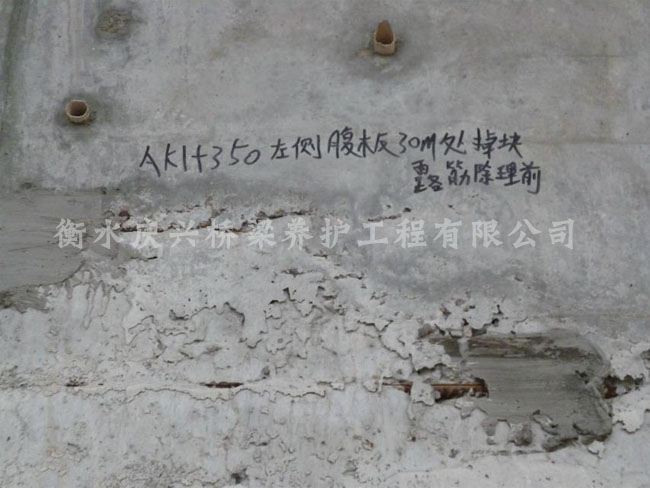 AK1+350左侧腹板30m处掉块
露筋除理前
衡水庆兴桥梁养护工程有限公司